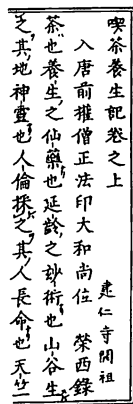 喫茶養生記卷之上
建仁寺開祖
入唐前權僧正法印大和尚位　榮西錄
茶也養生之仙藥也延齡之妙術也山谷生
之其地神靈也人倫採之其人長命也天竺